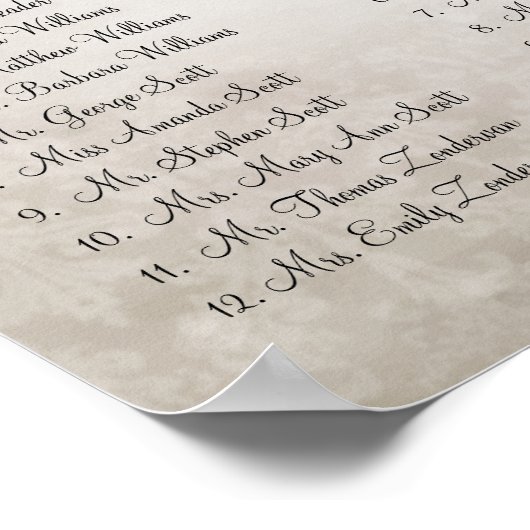 Williams
Matthew Williams
Barbara Williams
Mr. George Scott
Miss Amanda Scott
9. Mr. Stephen Scott
10. Mrs. Mary Ann Scott
11. Mr. Thomas Zondervan
12. Mrs. Emily
7.
8.